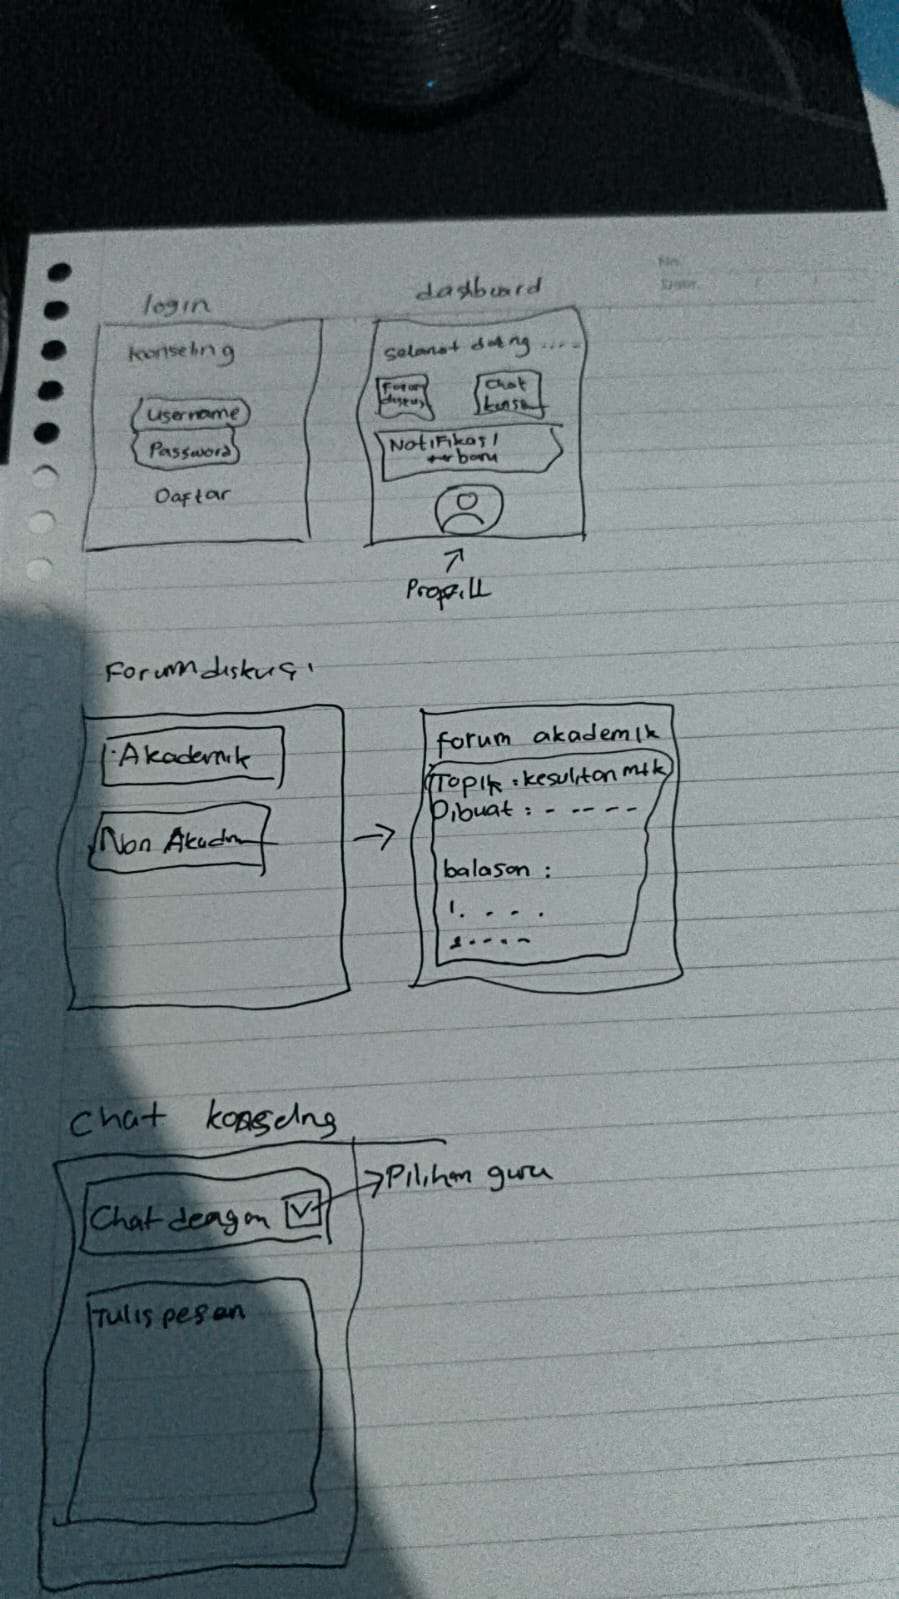 No.
Date
login
konseling
Username
Password
Daftar
dashboard
Selamat datang ....
Forum
diskusi
Chat
konse
Notifikasi
terbaru
Profill
Forum diskusi
Akademik
Non Akadm
forum akademik
Topik : kesulitan mtk
Dibuat : - - - - -
balasan :
1. - - .
2 - - - -
Chat konselng
Chat dengan
Pilihan guru
Tulis pesan